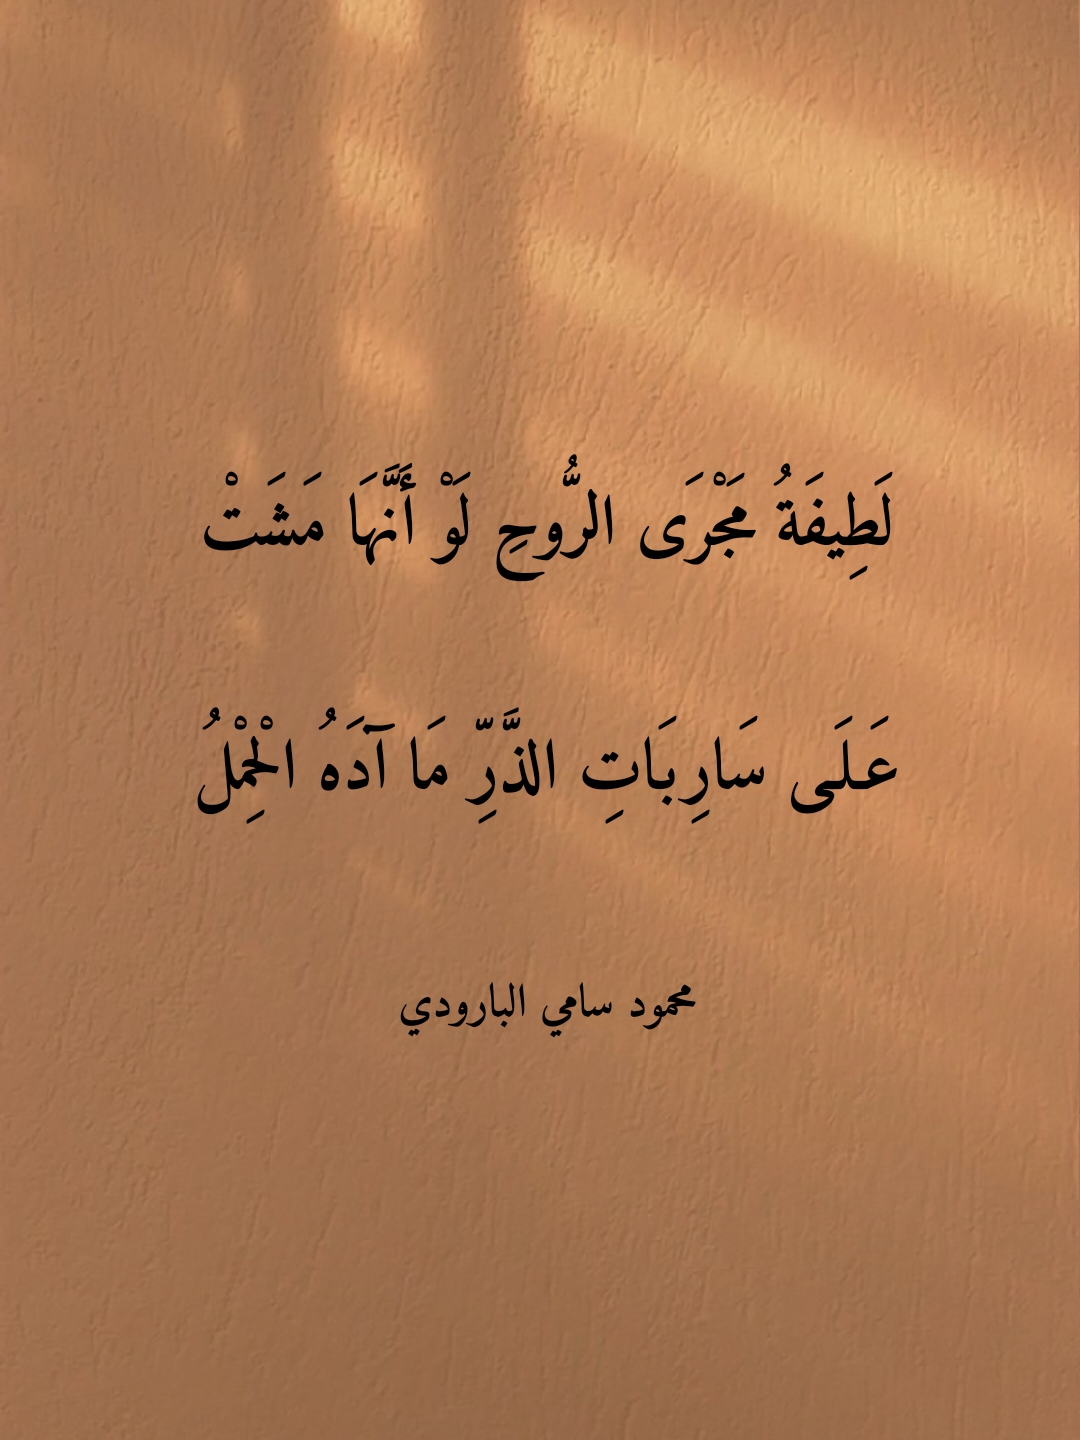 لَطِيفَةُ مَجْرَى الرُّوحِ لَوْ أَنَّهَا مَشَتْ
عَلَى سَارِبَاتِ الذَّرِّ مَا آدَهُ الْحِمْلُ
محمود سامي البارودي